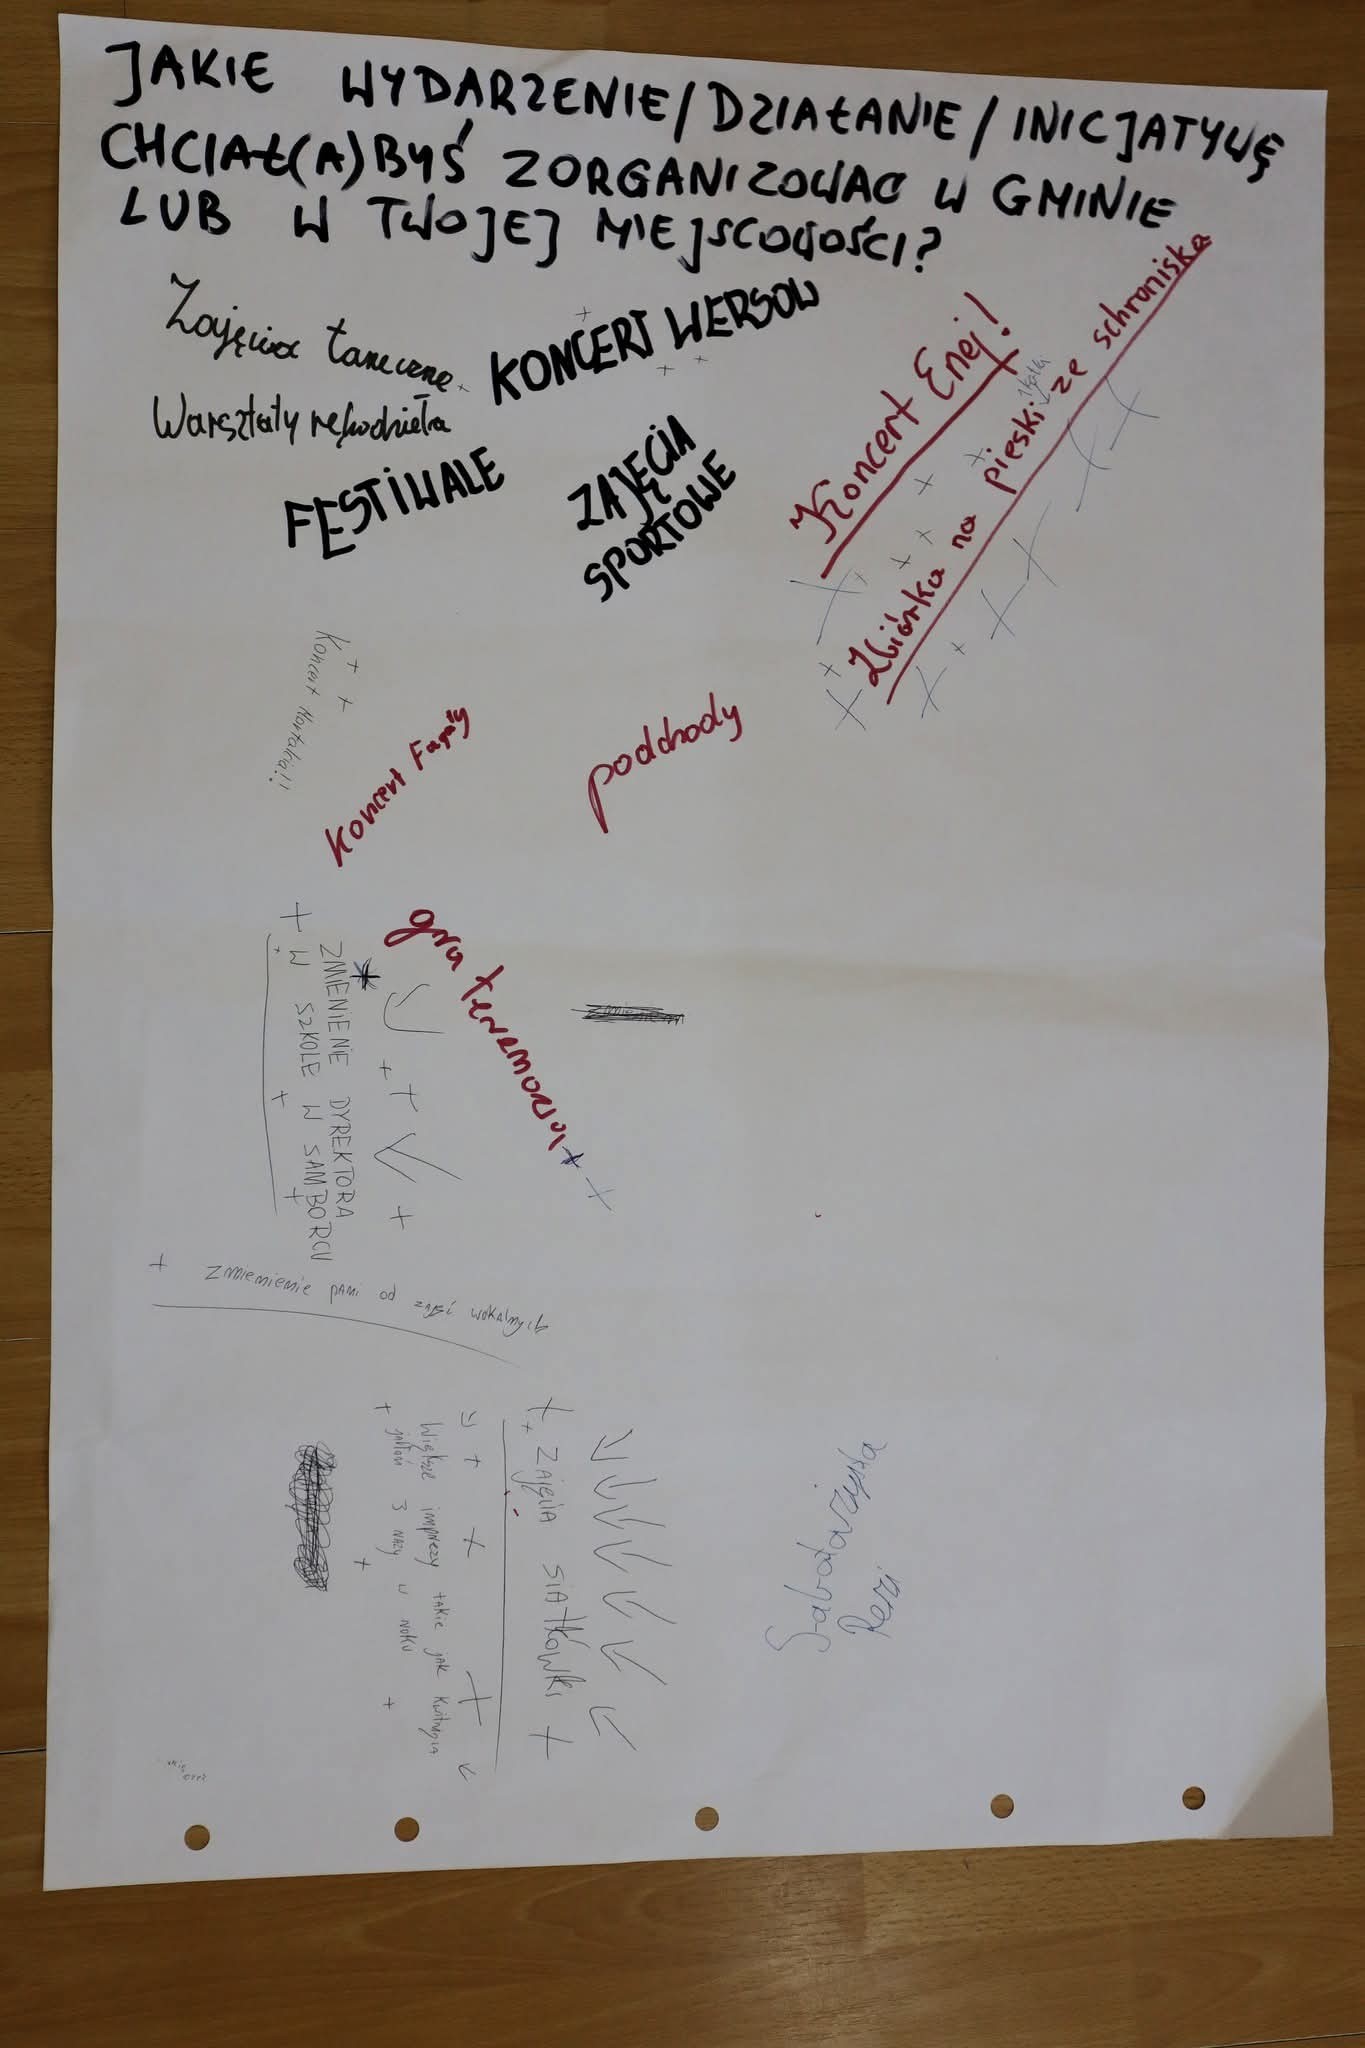 JAKIE WYDARZENIE/DZIAŁANIE/INICJATYWĘ
CHCIAŁ(A)BYŚ ZORGANIZOWAĆ W GMINIE
LUB W TWOJEJ MIEJSCOWOŚCI?
Zajęcia taneczne
KONCERT WERSOW
Warsztaty rękodzieła
FESTIWALE
ZAJĘCIA
SPORTOWE
Koncert Enej!
Zbiórka na pieski ze schroniska
Koncert
Koncert Fagaty
podchody
gra terenowa
ZMIENIENIE DYREKTORA
W SZKOLE W SAMBORCU
Zmienienie pani od zajęć wokalnych
ZAJĘCIA SIATKÓWKI
Większe imprezy takie jak kwitnąca
jabłoń 3 razy w roku